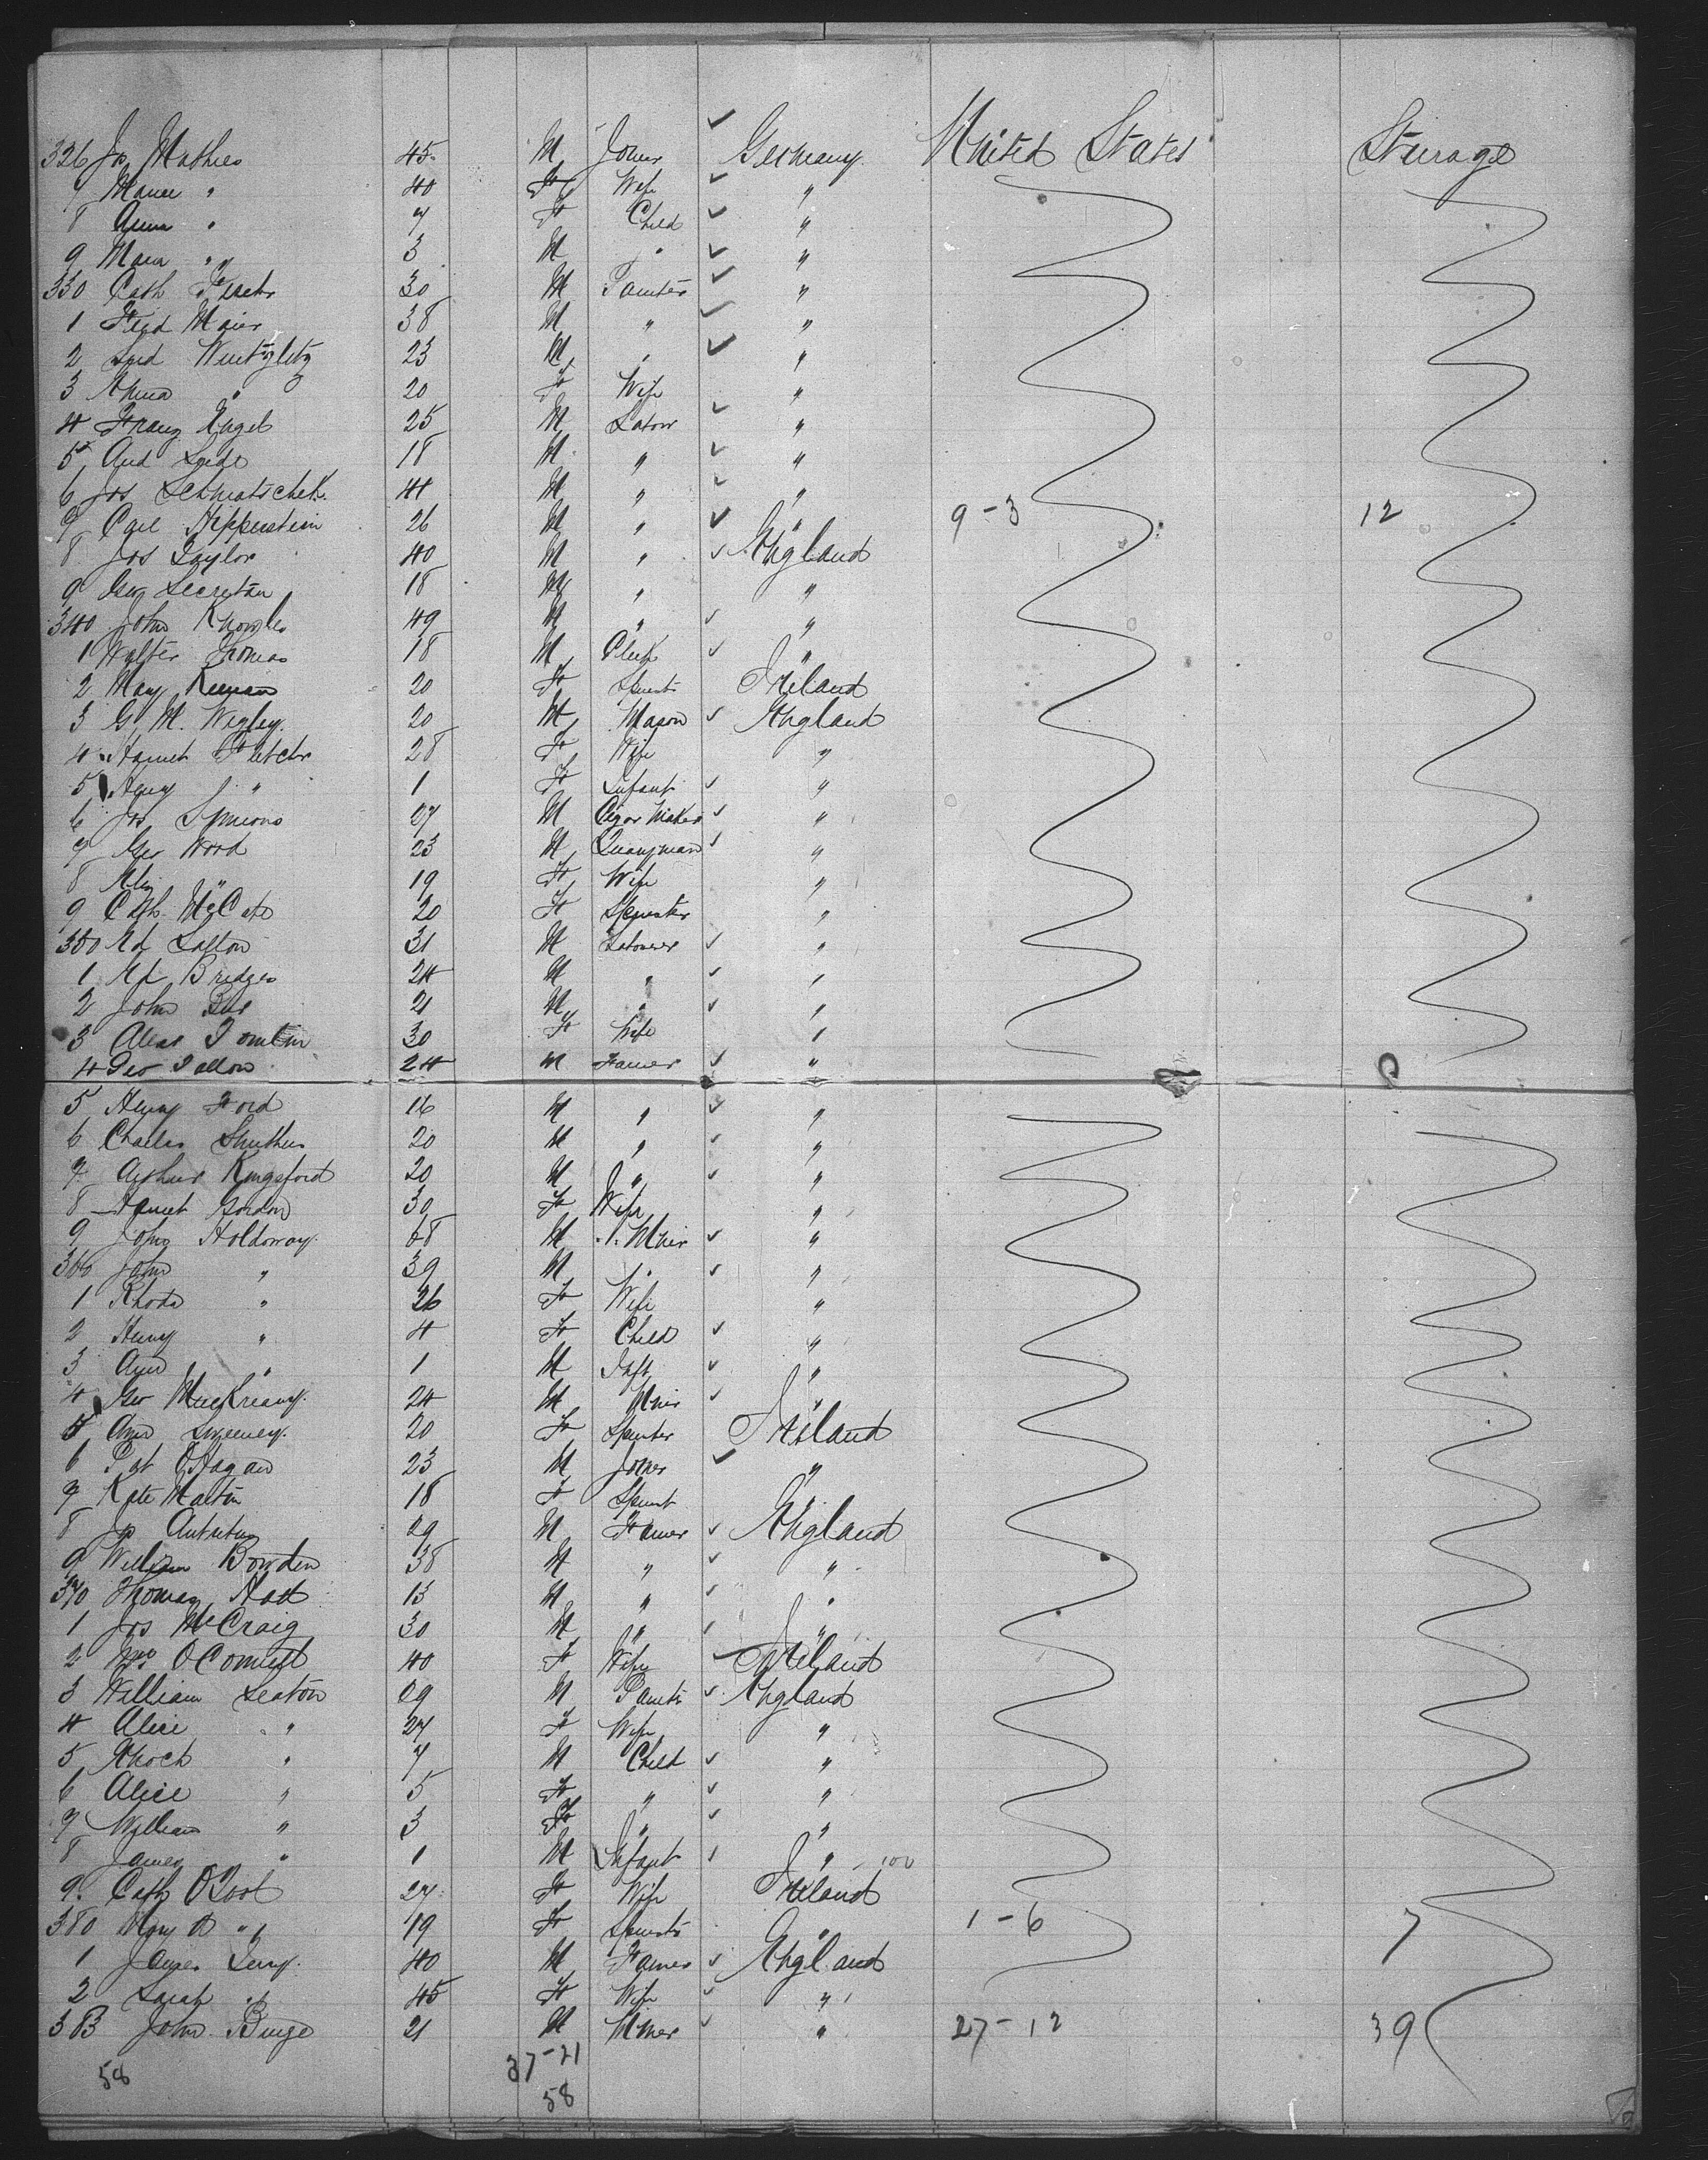 326 Jos Mathies 45 M Joiner ✓ Germany United States Sturage
7 " 40 F Wife ✓ "
8 Anna " 7 F Child ✓ "
9 " 3 M " ✓ "
330 Cath 30 M Painter ✓ "
1 Fred Maier 38 M " ✓ "
2 23 M " ✓ "
3 " 20 F Wife "
4 Franz Engel 25 M Labor ✓ "
5 And 18 M " ✓ "
6 Jos Schmatschek 44 M " ✓ "
7 Carl Hipperstein 26 M " ✓ " 9-3 12
8 Jos Taylor 40 M " ✓ England
9 Geo Secretan 18 M " "
340 John Knowles 49 M " ✓ "
1 Walter Thomas 18 M Clerk ✓ "
2 Mary Keenan 20 F Spinst Ireland
3 G. M. Wigley 20 M Mason ✓ England
4 Harriet Fletcher 28 F Wife "
5 Henry " 1 F Infant ✓ "
6 Jos Simeons 27 M Cigar Maker ✓ "
7 Geo Wood 23 M Quarryman ✓ "
8 Eliz " 19 F Wife "
9 Cath. McCabe 20 F Spinster "
350 Ed Salton 31 M Labourer ✓ "
1 Ed Bridges 24 M " ✓ "
2 John 21 M " ✓ "
3 Alice Tomlin 30 F Wife "
4 Geo 24 M Farmer ✓ "
5 Henry Ford 16 M " ✓ "
6 Charles Smithers 20 M " ✓ "
7 Arthur Kingsford 20 M " ✓ "
8 Harriet Gordon 30 F Wife "
9 John Holdoway 68 M Miner ✓ "
360 John " 39 M " ✓ "
1 Rhoda " 36 F Wife "
2 Henry " 4 F Child ✓ "
3 Ann " 1 M Inft ✓ "
4 Geo 24 M Miner ✓ "
5 Ann Sweeney 20 F Spinster Ireland
6 Pat O'Hagan 23 M Joiner ✓ "
7 Kate Martin 18 F Spinst "
8 Jos 29 M Farmer ✓ England
9 William Bowden 38 M " ✓ "
370 Thomas Hatt 13 M " ✓ "
1 Jos McCraig 30 M " ✓ "
2 Mrs O'Connell 40 F Wife Ireland
3 William Seaton 29 M Painter ✓ England
4 Alice " 27 F Wife "
5 Enoch " 7 M Child ✓ "
6 Alice " 5 F " ✓ "
7 William " 3 F " ✓ "
8 James " 1 M Infant ✓ " 100
9 Cath O'Tool 27 F Wife Ireland
380 Mary A " 19 F Spinster " 1-6 7
1 James Terry 40 M Farmer ✓ England
2 Sarah " 45 F Wife ✓ "
383 John Binge 21 M Miner ✓ " 27-12 39
58 37-21
58